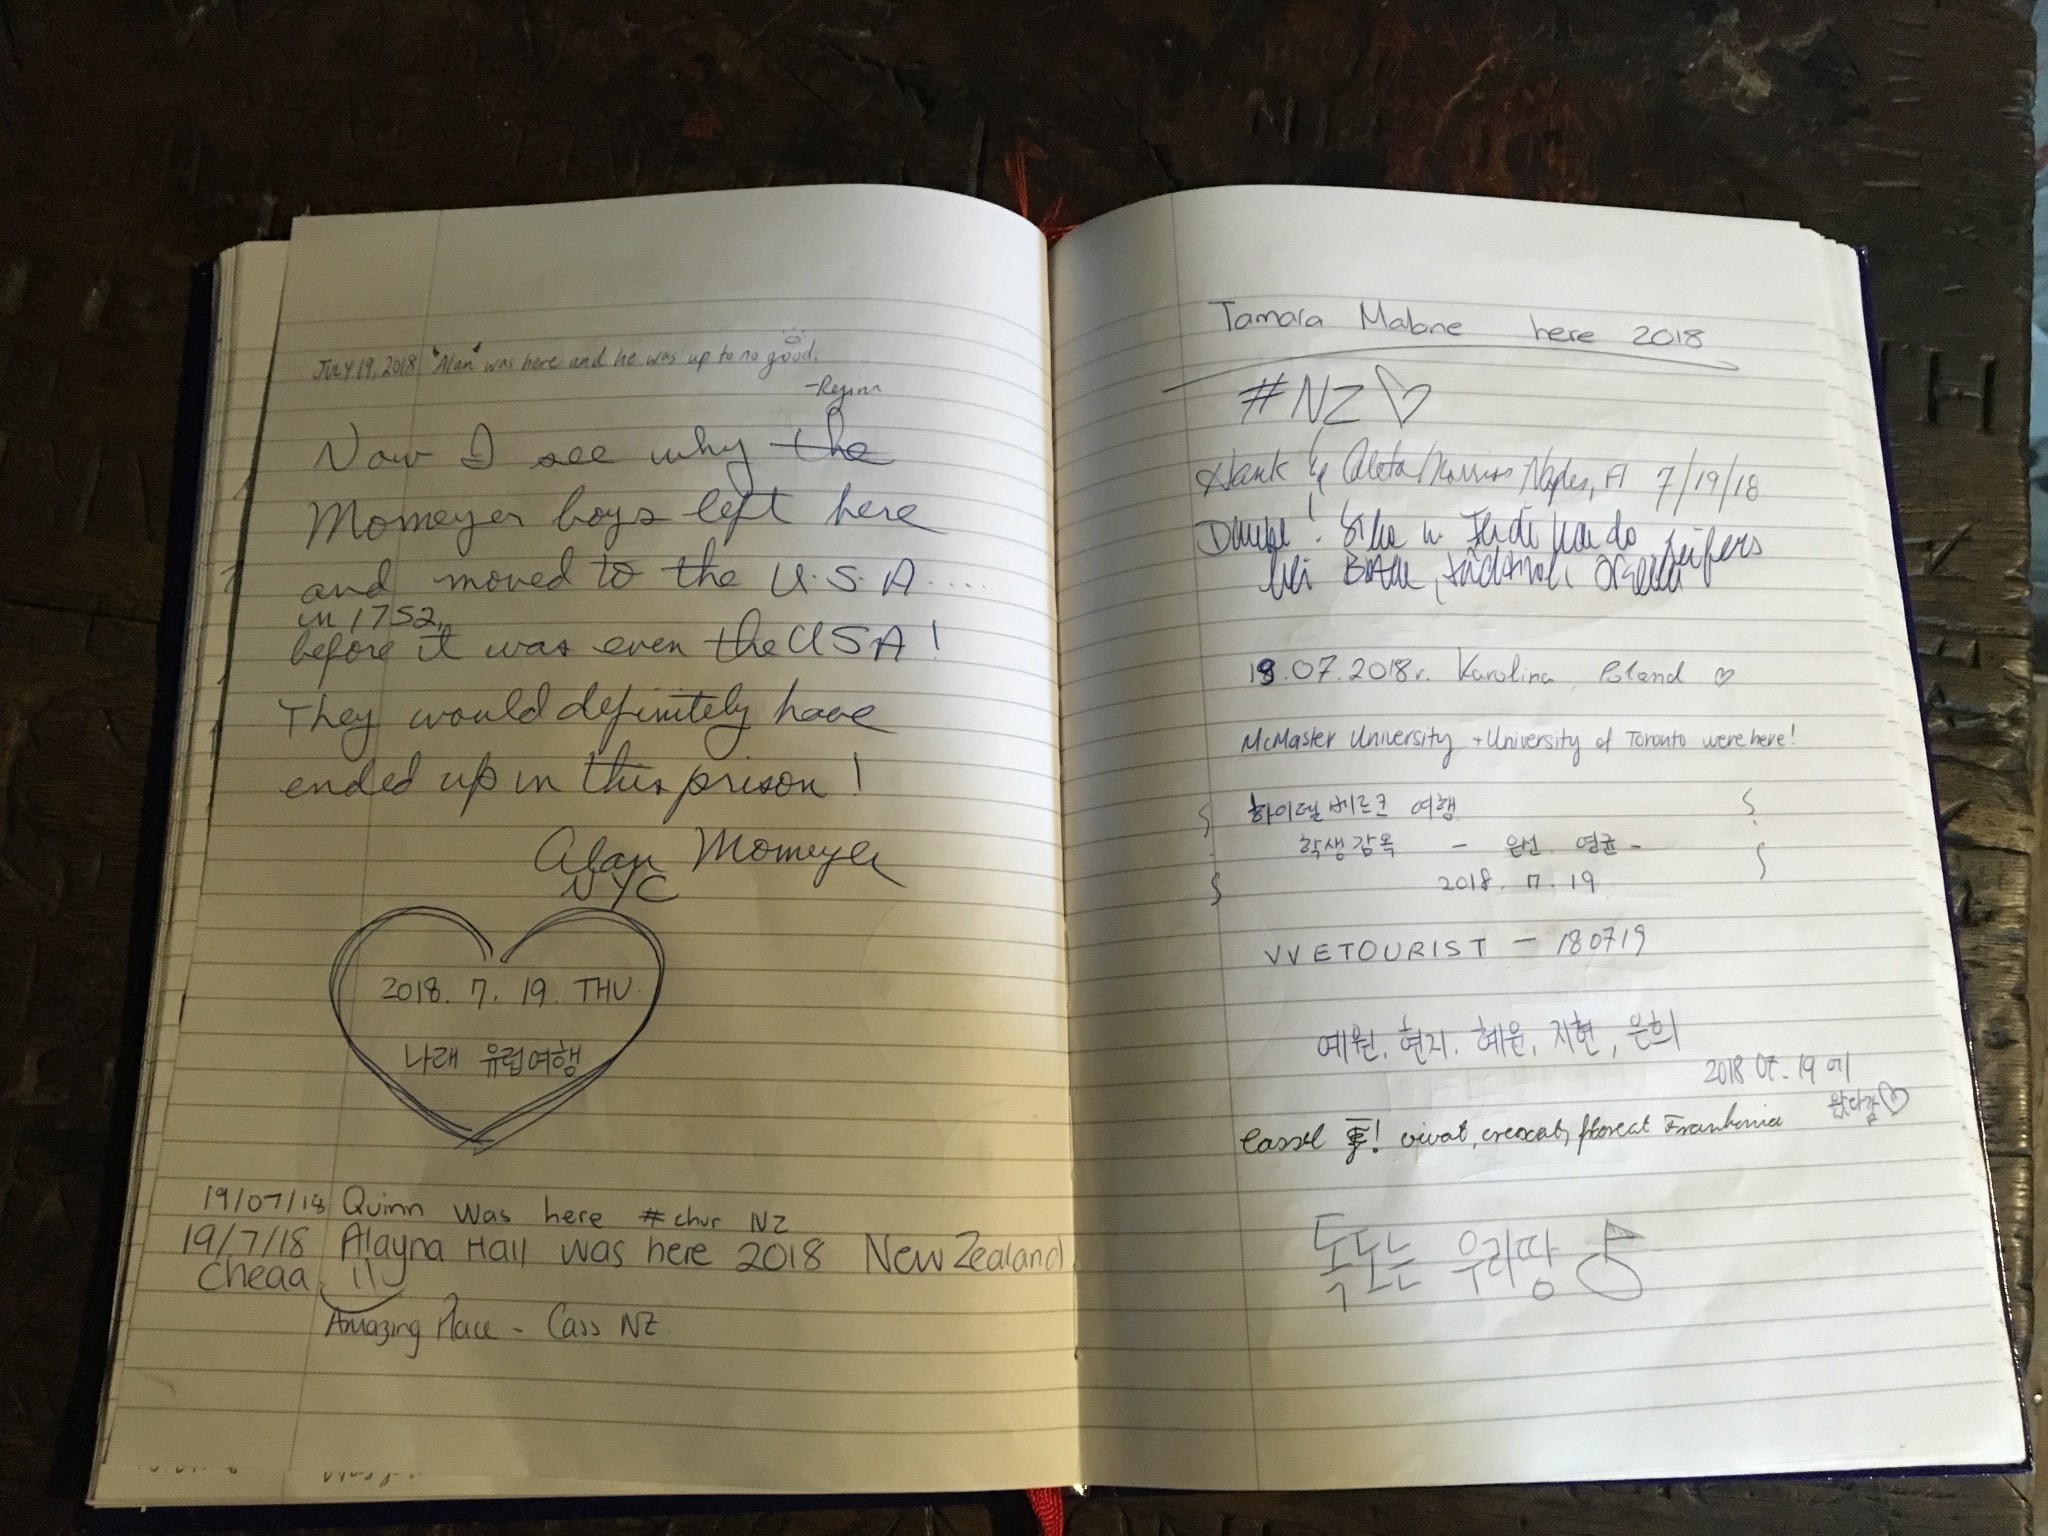 July 19, 2018 "Alan" was here and he was up to no good.
Now I see why the
Momeyer boys left here
and moved to the U.S.A.....
in 1752,
before it was even the USA!
They would definitely have
ended up in this prison!
Alan Momeyer
NYC
2018. 7. 19. THU.
나래 유럽여행
19/07/18 Quinn was here #chur NZ
19/7/18 Alayna Hall was here 2018 New Zealand
Cheaa
Amazing Place - Cass NZ.
Tamara Malone here 2018
#NZ
Hank & Naples, Fl 7/19/18
19.07.2018r. Karolina, Poland ♡
McMaster University + University of Toronto were here!
하이델베르크 여행
학생감옥 - 은선. 영균 -
2018. 7. 19
VVETOURIST - 180719
예원. 현지. 혜윤, 지현, 은희
2018.07.19 에
왔다감♡
Cassel ! vivat, crescat, floreat Frankonia
독도는 우리땅